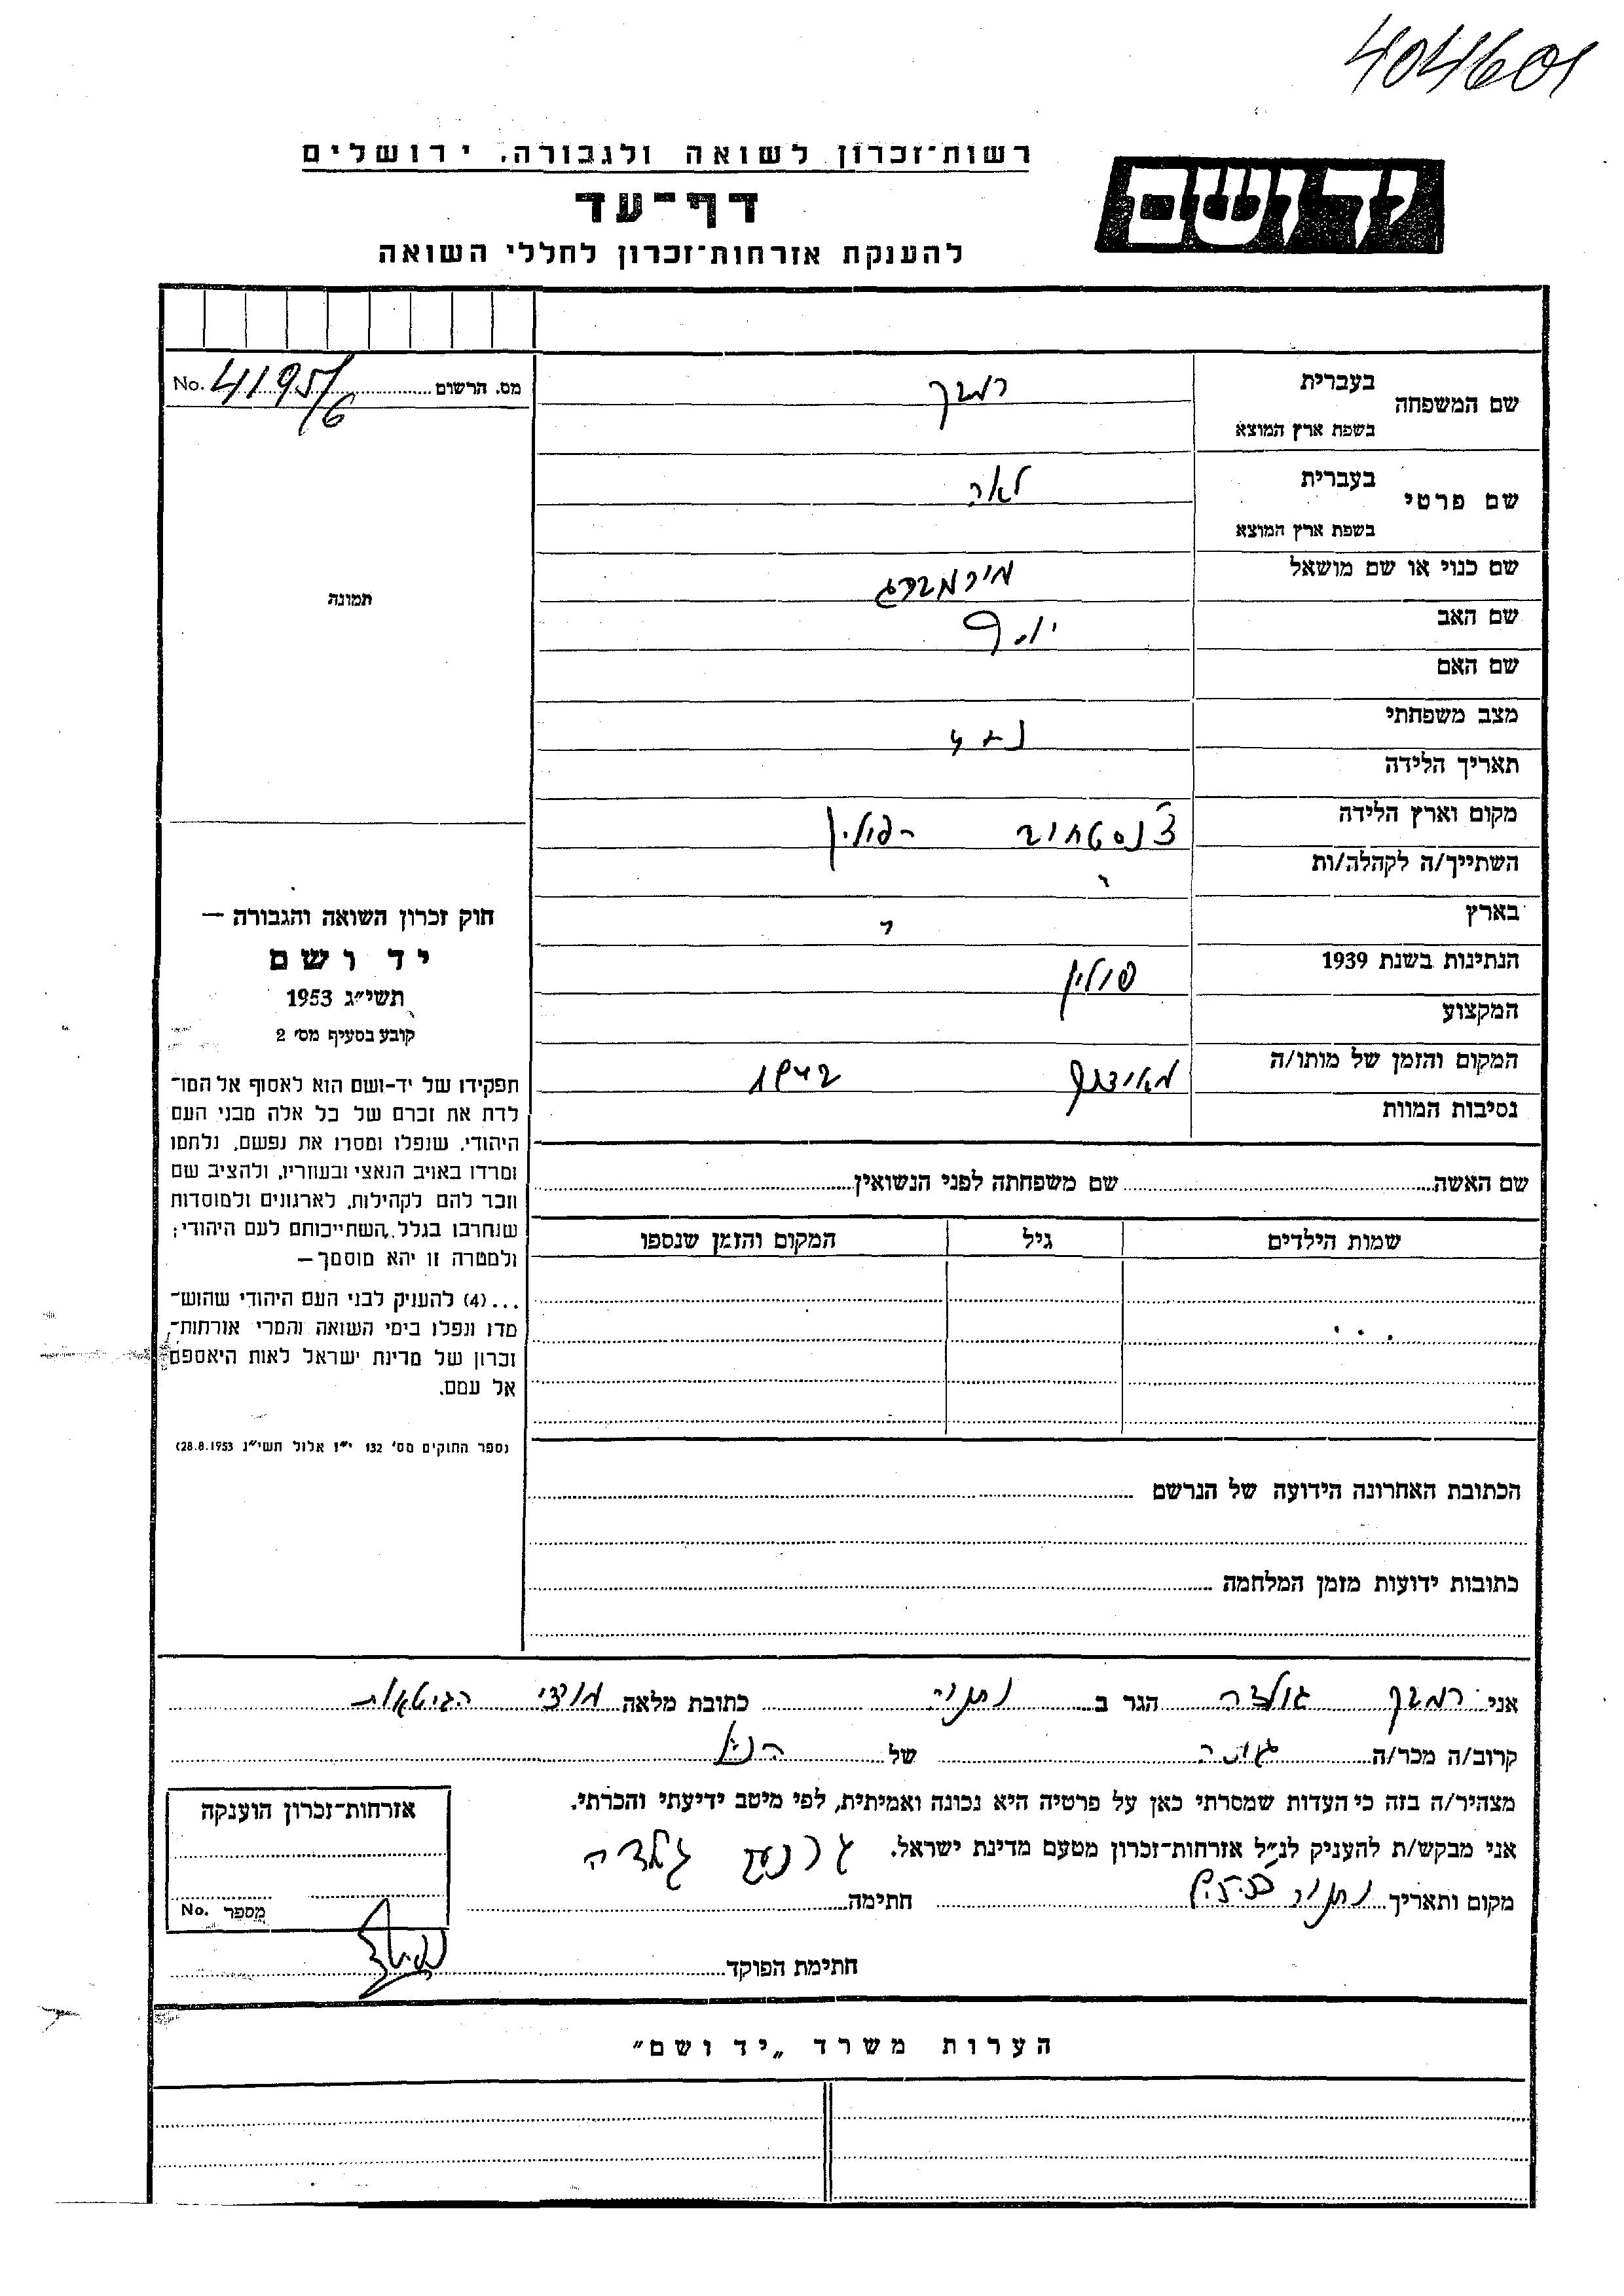 404601
רשות־זכרון לשואה ולגבורה, ירושלים
יד ושם
דף־עד
להענקת אזרחות־זכרון לחללי השואה
מס. הרשום No. 4195/6
שם המשפחה
בעברית
בשפת ארץ המוצא
שם פרטי
בעברית לאה
בשפת ארץ המוצא
שם כנוי או שם מושאל
שם האב יוסף
שם האם
מצב משפחתי
תאריך הלידה
מקום וארץ הלידה צ'נסטחוב - פולין
השתייך/ה לקהלה/ות "
בארץ "
הנתינות בשנת 1939 פולין
המקצוע
המקום והזמן של מותו/ה 1942
נסיבות המוות
תמונה
חוק זכרון השואה והגבורה —
יד ושם
תשי״ג 1953
קובע בסעיף מס׳ 2
תפקידו של יד-ושם הוא לאסוף אל המו־
לדת את זכרם של כל אלה מבני העם
היהודי, שנפלו ומסרו את נפשם, נלחמו
ומרדו באויב הנאצי ובעוזריו, ולהציב שם
וזכר להם לקהילות, לארגונים ולמוסדות
שנחרבו בגלל השתייכותם לעם היהודי;
ולמטרה זו יהא מוסמך —
...(4) להעניק לבני העם היהודי שהוש־
מדו ונפלו בימי השואה והמרי אזרחות־
זכרון של מדינת ישראל לאות היאספם
אל עמם.
(ספר החוקים מס׳ 132 י״ז אלול תשי״ג 28.8.1953)
שם האשה שם משפחתה לפני הנשואין
שמות הילדים גיל המקום והזמן שנספו
הכתובת האחרונה הידועה של הנרשם
כתובות ידועות מזמן המלחמה
אני גולדה הגר ב נתניה כתובת מלאה הגיטאות
קרוב/ה מכר/ה של
מצהיר/ה בזה כי העדות שמסרתי כאן על פרטיה היא נכונה ואמיתית, לפי מיטב ידיעתי והכרתי.
אני מבקש/ת להעניק לנ״ל אזרחות־זכרון מטעם מדינת ישראל.
מקום ותאריך נתניה חתימה
אזרחות־זכרון הוענקה
מספר No.
חתימת הפוקד
הערות משרד „יד ושם״